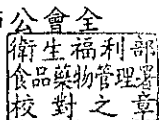 公會全
衛生福利部
食品藥物管理署
校對之章